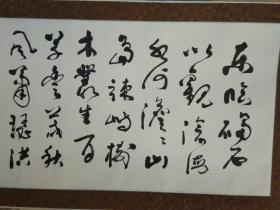 东临碣石
以觀滄海
水何澹々山
島竦峙樹
木叢生百
草豐茂秋
風蕭瑟洪